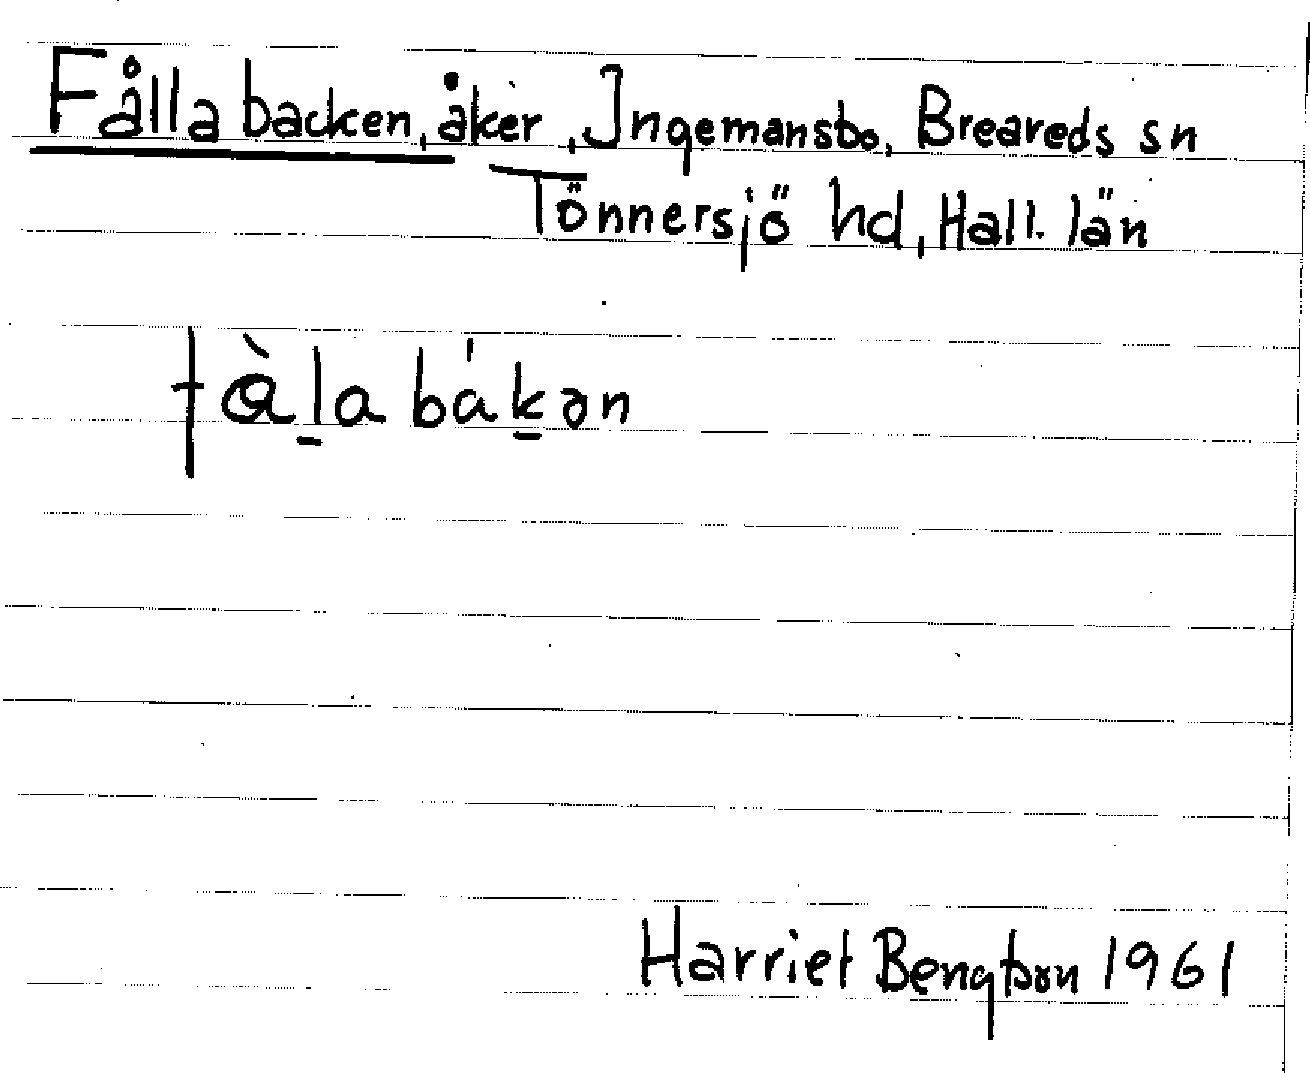 Fållabacken, åker, Ingemansbo, Breareds sn
Tönnersjö hd, Hall. län
fàlabákən
Harriet Bengtson 1961